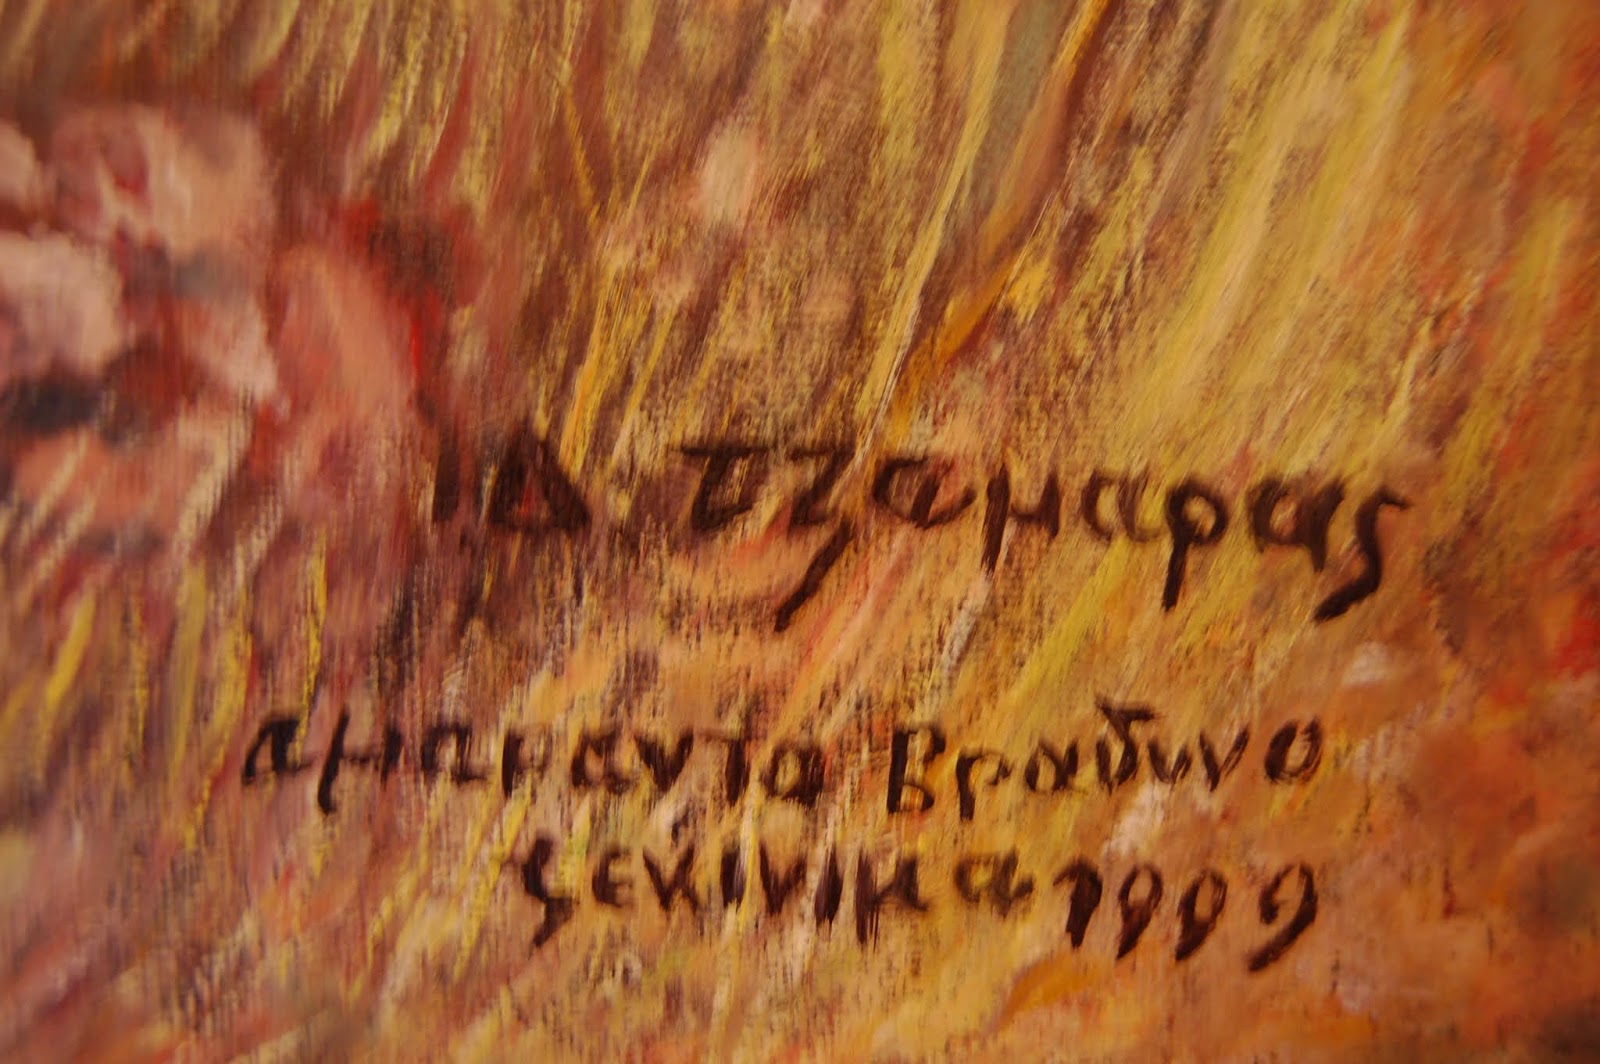 Δ τζαμαρας
αμαραντα βραδυνο
ξεκινιμα 1999